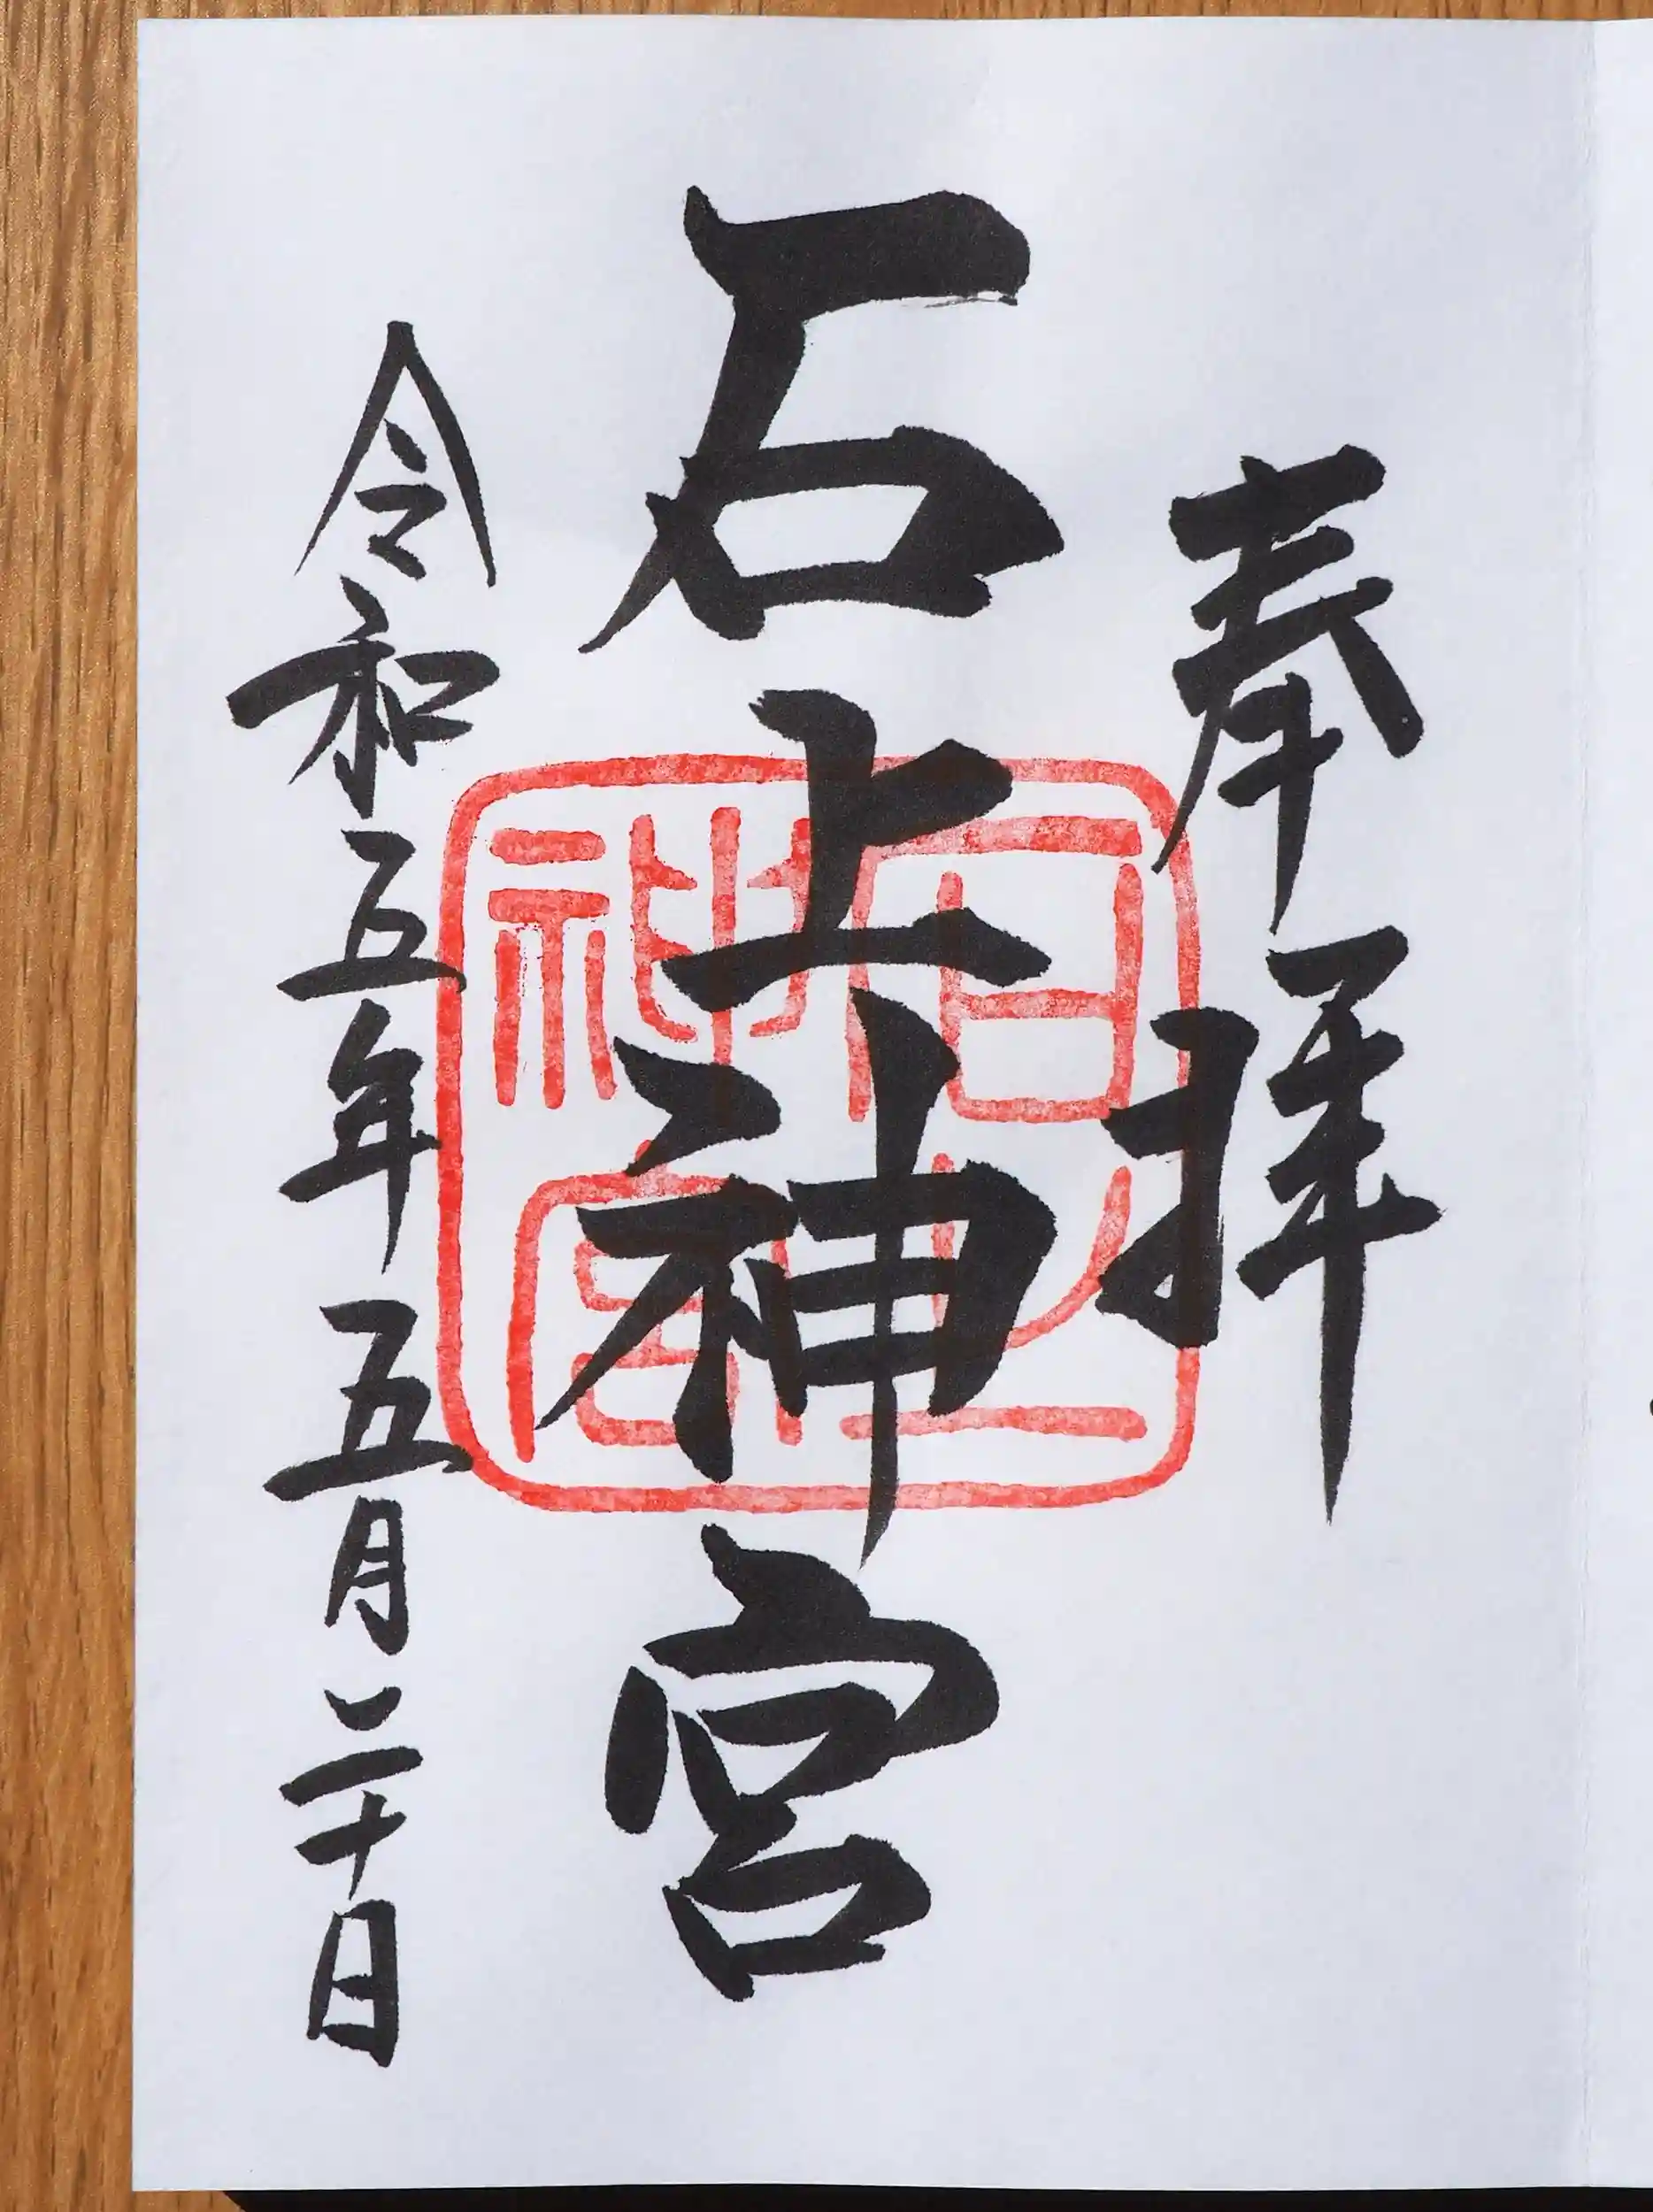 奉拝
石上神宮
令和五年五月二十日
石上
神宮